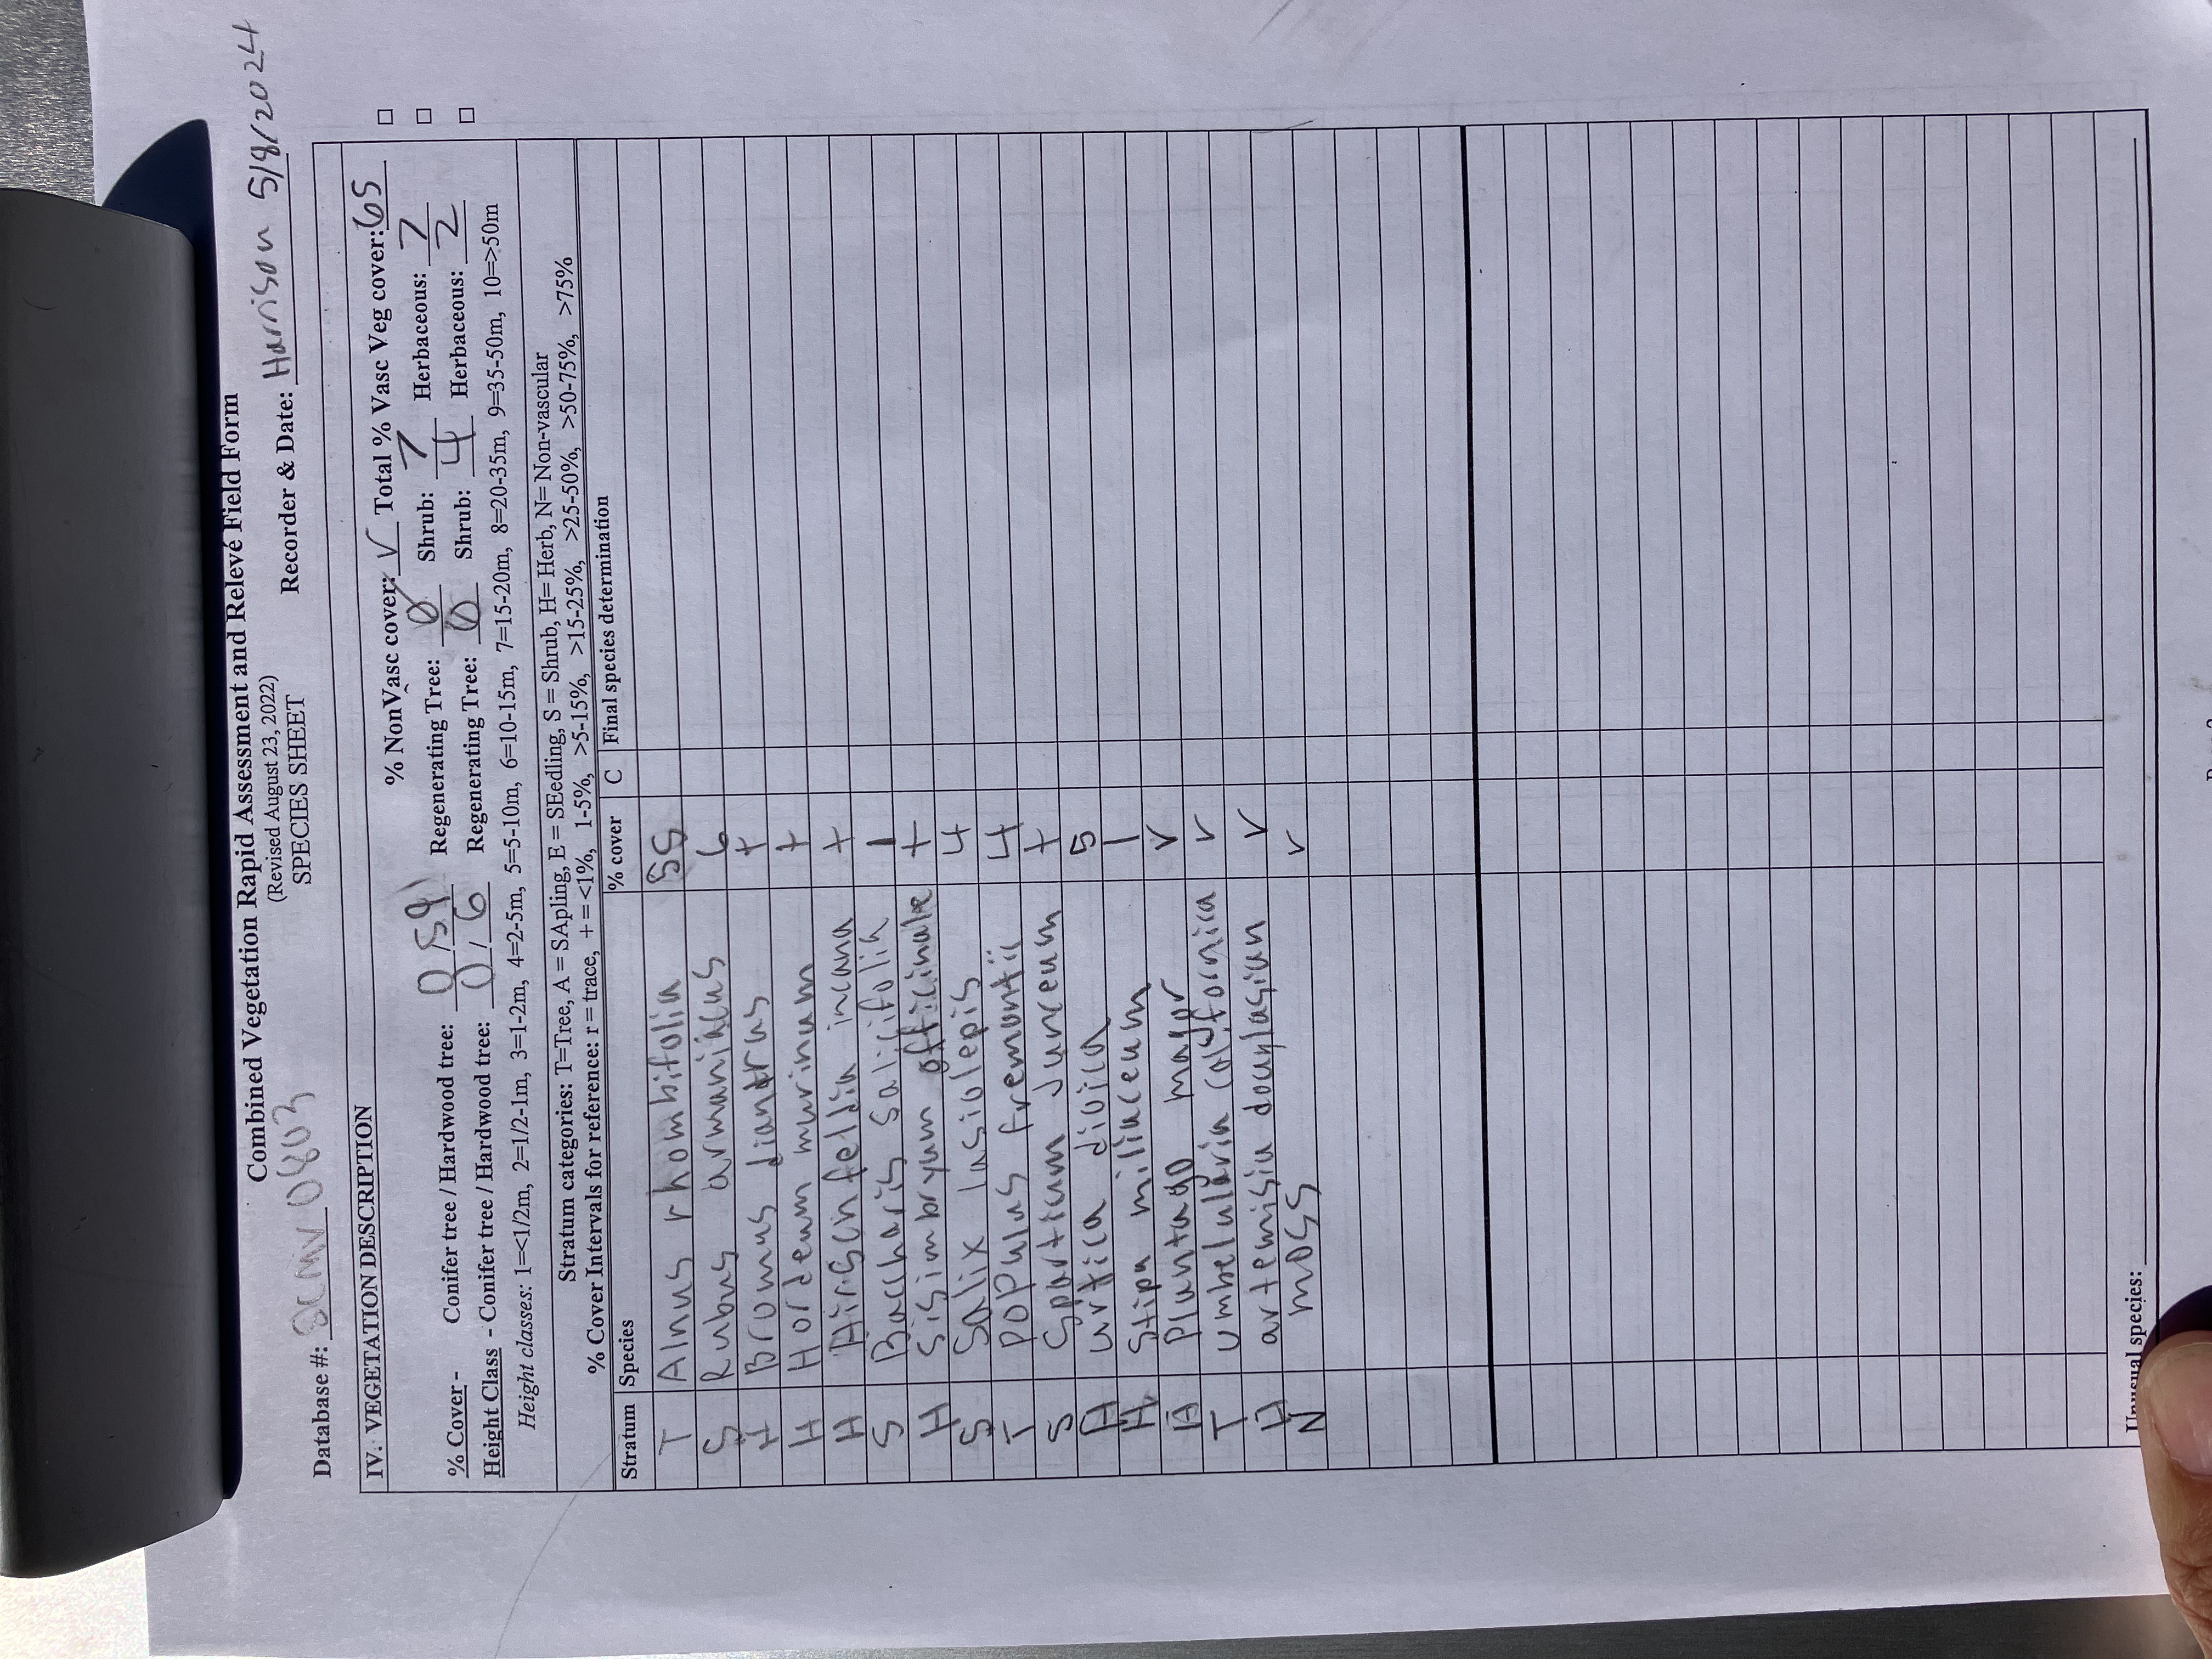 Combined Vegetation Rapid Assessment and Relevé Field Form
(Revised August 23, 2022)
SPECIES SHEET
Database #: 0803 Recorder & Date: Harrison 5/8/2024
IV. VEGETATION DESCRIPTION
% NonVasc cover: r Total % Vasc Veg cover: 65
% Cover - Conifer tree / Hardwood tree: 0 / 59 Regenerating Tree: 0 Shrub: 7 Herbaceous: 7
Height Class - Conifer tree / Hardwood tree: 0 / 6 Regenerating Tree: 0 Shrub: 4 Herbaceous: 2
Height classes: 1=<1/2m, 2=1/2-1m, 3=1-2m, 4=2-5m, 5=5-10m, 6=10-15m, 7=15-20m, 8=20-35m, 9=35-50m, 10=>50m
Stratum categories: T=Tree, A = SApling, E = SEedling, S = Shrub, H= Herb, N= Non-vascular
% Cover Intervals for reference: r = trace, + = <1%, 1-5%, >5-15%, >15-25%, >25-50%, >50-75%, >75%
Stratum Species % cover C Final species determination
T Alnus rhombifolia 55
S Rubus armaniacus 6
H Bromus diantrus +
H Hordeum murinum +
H Hirschfeldia incana +
S Baccharis salicifolia 1
H Sisimbryum officinale +
S Salix lasiolepis 4
T populus fremontii 4
S Spartium Junceum +
H urtica dioica 5
H Stipa miliaceum 1
H Plantago major r
T umbelularia californica r
H artemisia douglasian r
N moss r
Unusual species: